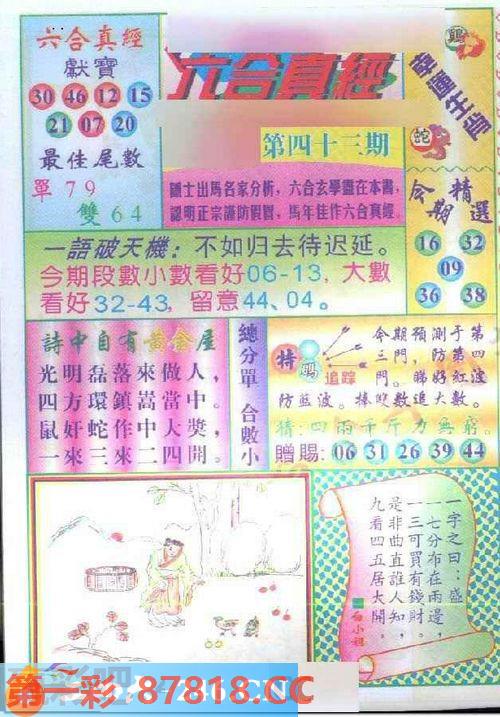 六合真經
獻寶
30 46 12 15
21 07 20
最佳尾數
單79
雙64
六合真經
第四十三期
隱士出馬名家分析，六合玄學盡在本書，
認明正宗謹防假冒，馬年佳作六合真經。
蛇
今期精選
16 32
09
36 38
一語破天機：不如归去待迟延。
今期段數小數看好06-13，大數
看好32-43，留意44、04。
詩中自有黃金屋
光明磊落來做人，
四方環鎮嵩當中。
鼠奸蛇作中大獎，
一來三來二四開。
總分單 合數小
特碼
追踪
今期預測于第
三門，防第四
門。睇好紅波
防藍波。捧雙數追大數。
猜：四兩千斤力無窮。
贈賜：06 31 26 39 44
一字之曰：盛
一七分布在兩邊，
一三可買有錢財，
是非曲直誰人知，
九看四五居大開。
第一彩 87818.CC